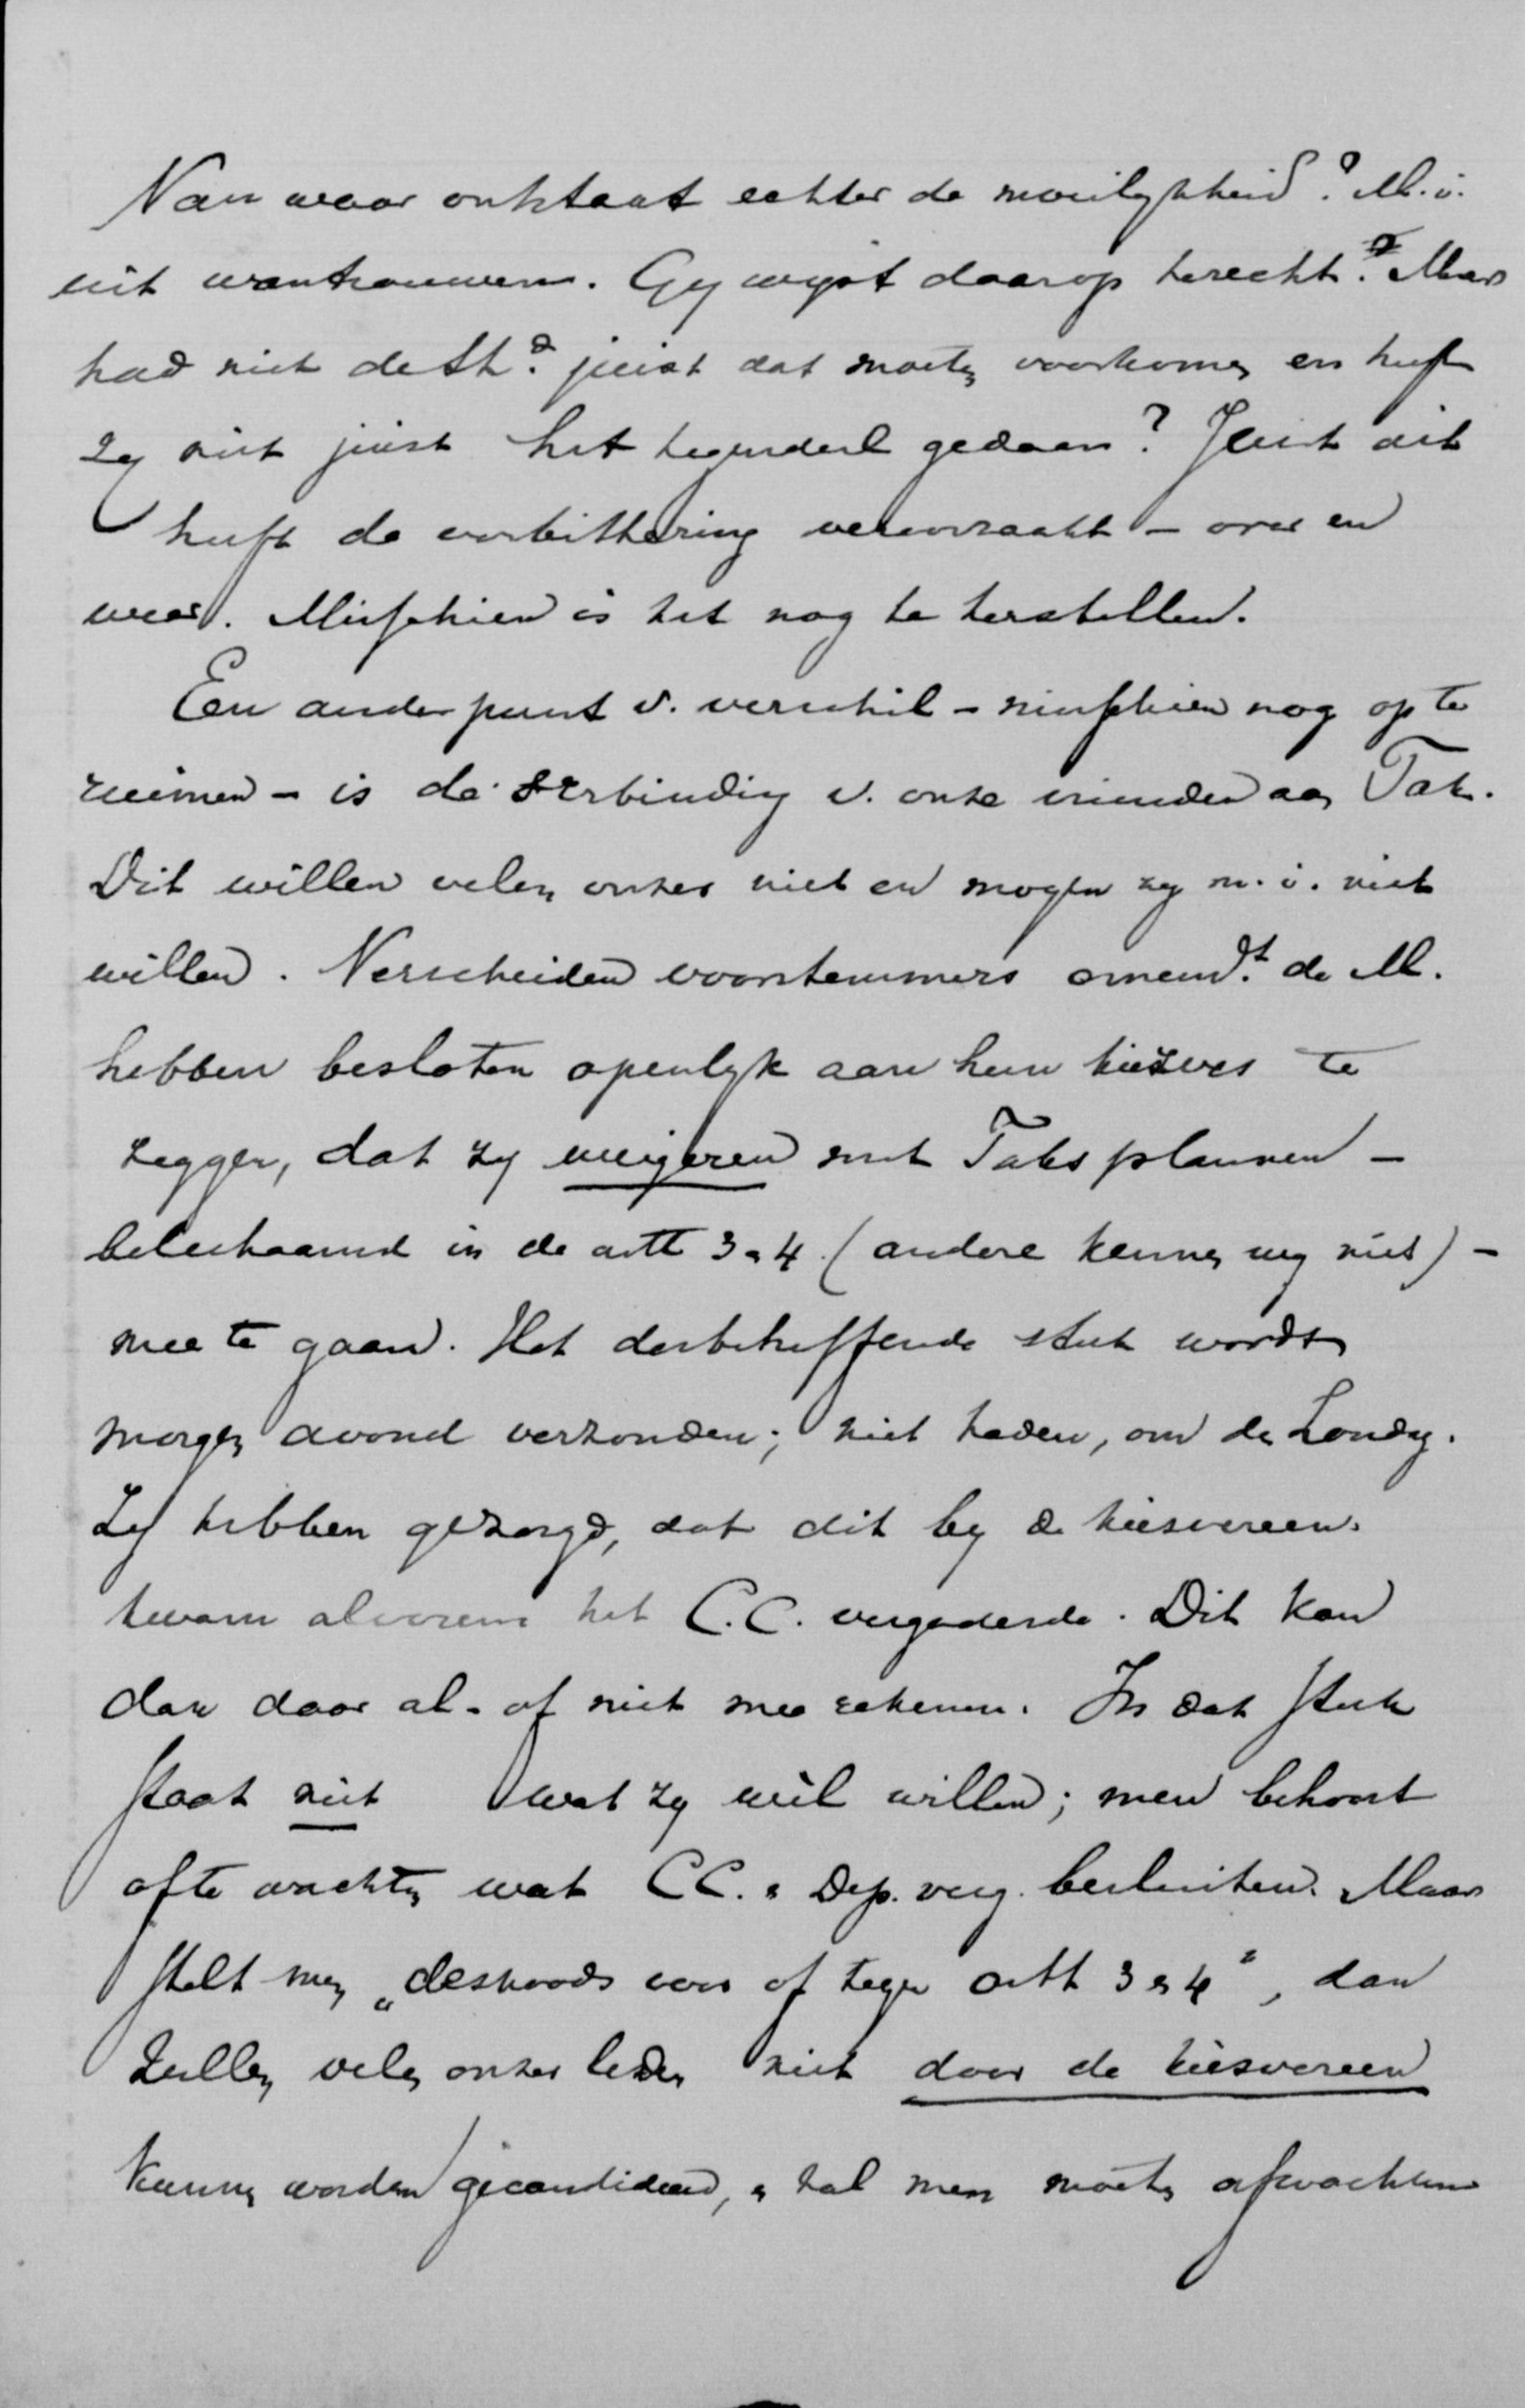 Van waar ontstaat echter de moeilijkheid? M.i.
uit wantrouwen. Gij wijst daarop terecht. Maar
had niet de St.d juist dat moeten voorkomen en heeft
zij niet juist het tegendeel gedaan? Juist dit
heeft de verbittering veroorzaakt – over en
weer. Misschien is het nog te herstellen.
Een ander punt v. verschil – misschien nog op te
ruimen – is de verbinding v. onze vrienden aan Tak.
Dit willen velen onzer niet en mogen zij m.i. niet
willen. Verscheiden voorstemmers amend.t de M.
hebben besloten openlijk aan hun kiezers te
zeggen, dat zij weigeren met Taks plannen –
belichaamd in de artt 3 & 4 (andere kennen wij niet) –
mee te gaan. Het desbetreffende stuk wordt
morgen avond verzonden; niet heden, om den Zondag.
Zij hebben gezorgd, dat dit bij de kiesvereen.
kwam alvorens het C.C. vergaderde. Dit kan
dan daar al- of niet mee rekenen. In dat stuk
staat niet wat zij wèl willen; men behoort
af te wachten wat CC. & Dep. verg. besluiten. Maar
stelt men „desnoods voor of tegen artt 3 & 4", dan
zullen velen onzer leden niet door de kiesvereen
kunnen worden gecandideerd, & zal men moeten afwachten